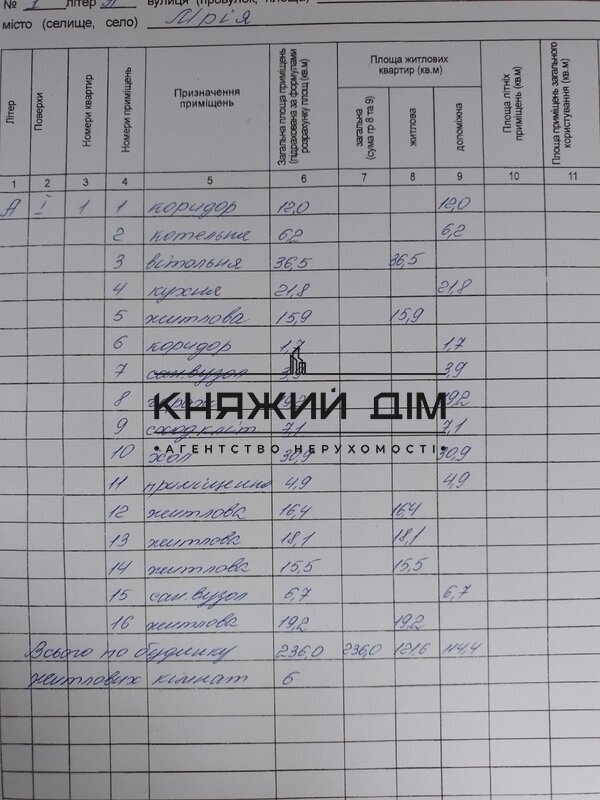 № 1 літер А вулиця (провулок, площа)
місто (селище, село) Мрія
Літер
Поверхи
Номери квартир
Номери приміщень
Призначення приміщень
Загальна площа приміщень (підрахована за формулами розрахунку площ) (кв.м)
Площа житлових квартир (кв.м)
загальна (сума гр 8 та 9)
житлова
допоміжна
Площа літніх приміщень (кв.м)
Площа приміщень загального користування (кв.м)
1 2 3 4 5 6 7 8 9 10 11
А І 1 1 коридор 12,0 12,0
2 котельня 6,2 6,2
3 вітальня 36,5 36,5
4 кухня 21,8 21,8
5 житлова 15,9 15,9
6 коридор 1,7 1,7
7 сан.вузол 3,9 3,9
8 19,2
КНЯЖИЙ ДІМ
9 сход.кліт 7,1 7,1
•АГЕНТСТВО НЕРУХОМОСТІ•
10 хол 30,9 30,9
11 приміщення 4,9 4,9
12 житлова 16,4 16,4
13 житлова 18,1 18,1
14 житлова 15,5 15,5
15 сан.вузол 6,7 6,7
16 житлова 19,2 19,2
Всього по будинку 236,0 236,0 121,6 114,4
житлових кімнат 6